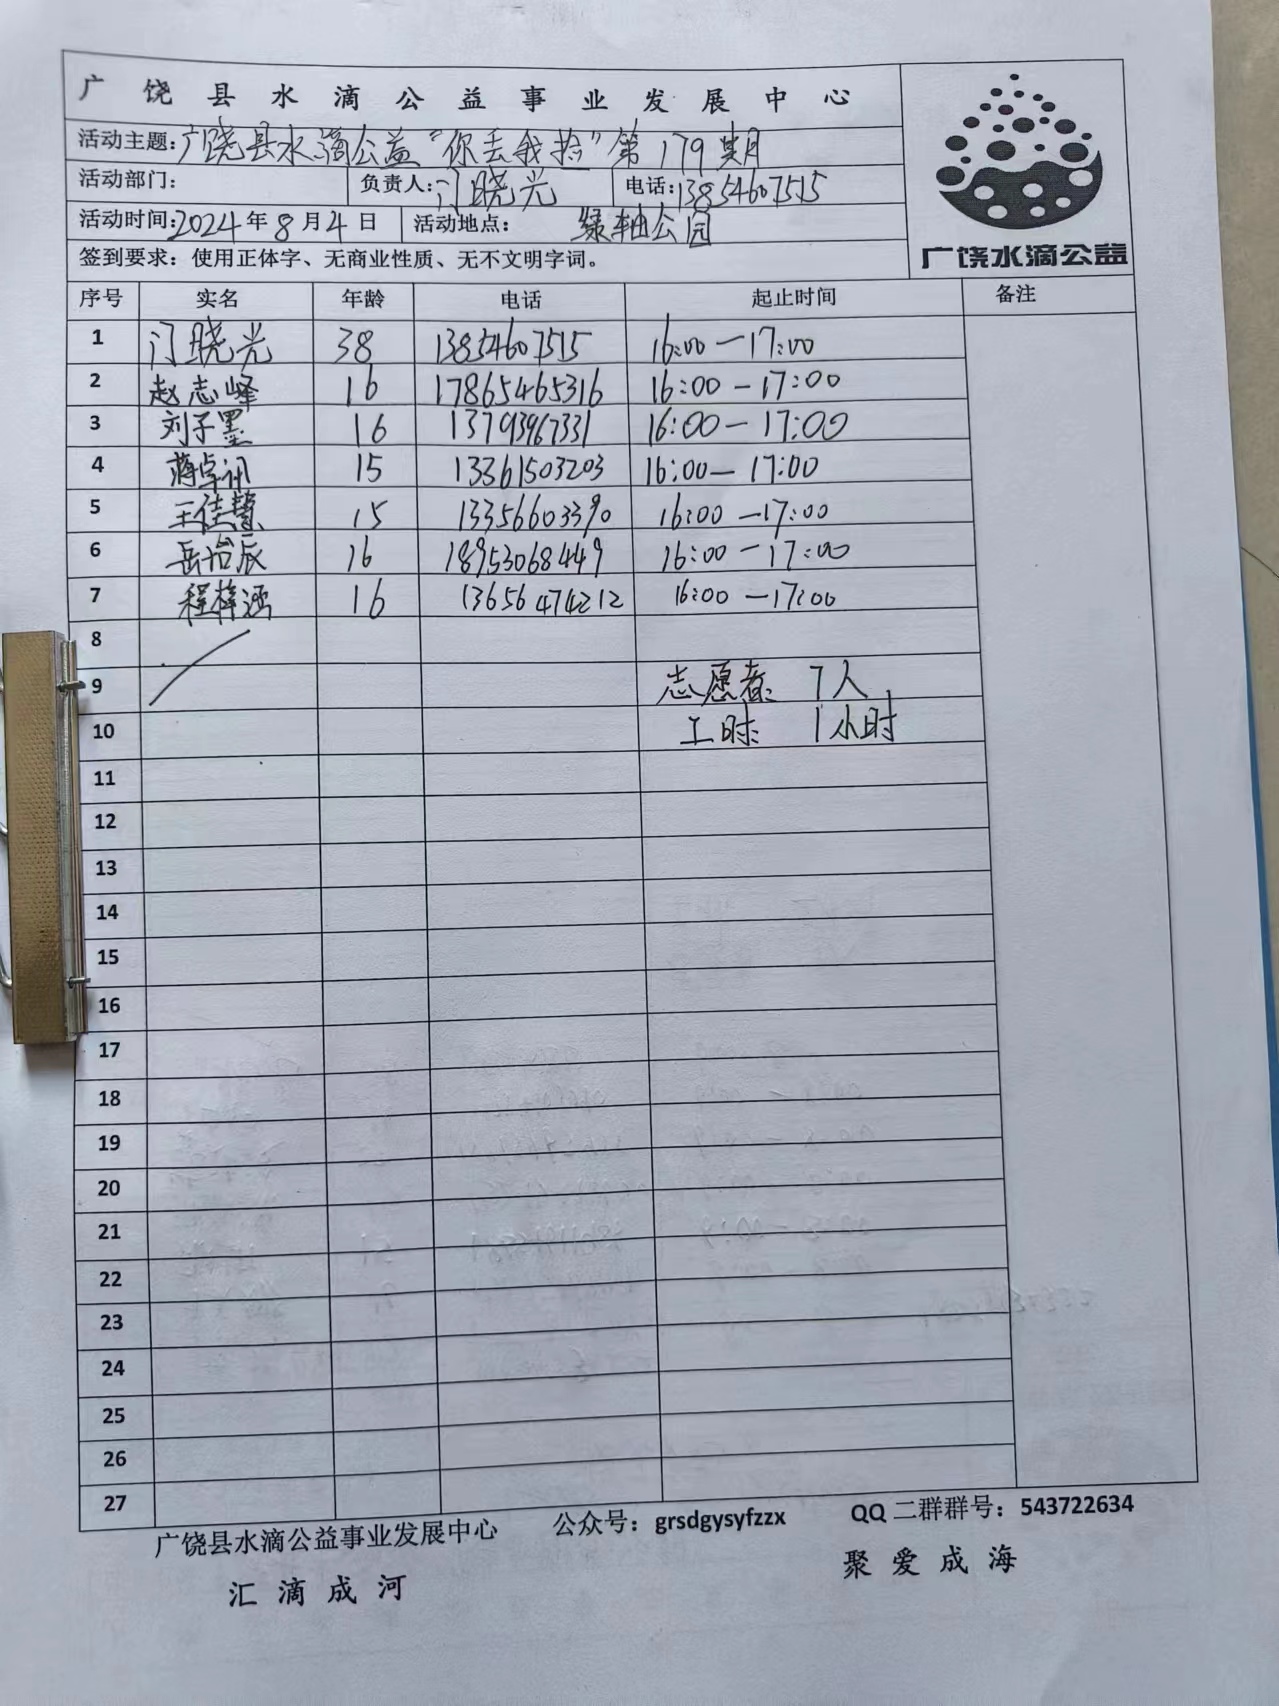 广饶县水滴公益事业发展中心
活动主题:广饶县水滴公益“你丢我捡”第179期
活动部门: 负责人:门晓光 电话:13854607515
活动时间:2024年8月4日 活动地点: 绿轴公园
签到要求：使用正体字、无商业性质、无不文明字词。
广饶水滴公益
序号 实名 年龄 电话 起止时间 备注
1 门晓光 38 13854607515 16:00—17:00
2 赵志峰 16 17865465316 16:00—17:00
3 刘子墨 16 13793967331 16:00—17:00
4 蒋卓讯 15 13361503203 16:00—17:00
5 王佳慧 15 13356603390 16:00—17:00
6 岳治辰 16 18953068449 16:00—17:00
7 程梓涵 16 13656474212 16:00—17:00
8
9 志愿者: 7人
10 工时: 1小时
11
12
13
14
15
16
17
18
19
20
21
22
23
24
25
26
27
广饶县水滴公益事业发展中心 公众号：grsdgysyfzzx QQ二群群号：543722634
汇滴成河 聚爱成海